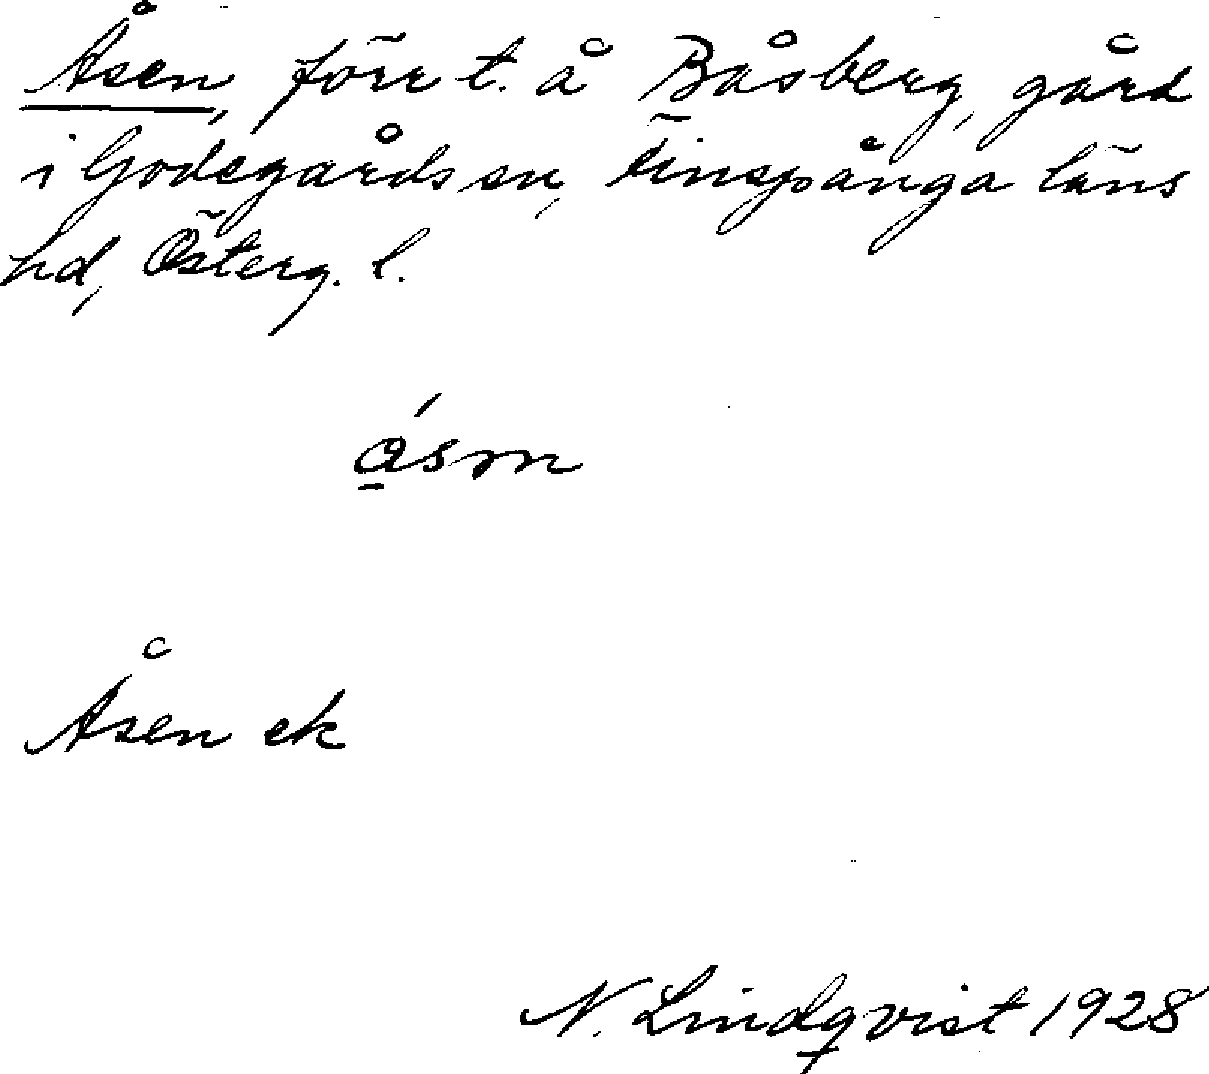 Åsen, förr t. å Båsberg, gård
i Godegårds sn, Finspånga läns
hd, Österg. l.
åsm
Åsen ek
N. Lindqvist 1928